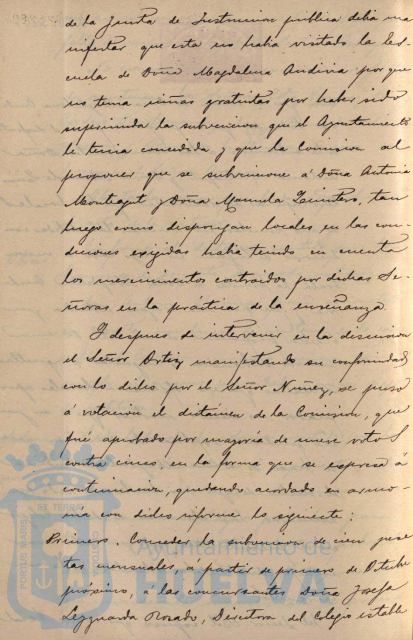 de la Junta de Instruccion publica debia ma
nifestar que esta no habia visitado la Es
cuela de Doña Magdalena Andivia por que
no tenia niñas gratuitas por haber sido
suprimida la subvencion que el Ayuntamiento
le tenia concedida y que la Comision al
proponer que se subvencione á Doña Antonia
Montagut y Doña Manuela Quintero, tan
luego como dispongan locales en las con
diciones exigidas habia tenido en cuenta
los merecimientos contraidos por dichas Se
ñoras en la práctica de la enseñanza.
Y despues de intervenir en la discusion
el Señor Ortiz manifestando su conformidad
con lo dicho por el Señor Nuñez, se puso
á votacion el dictamen de la Comision, que
fué aprobado por mayoria de nueve votos
contra cinco, en la forma que se expresa á
continuacion, quedando acordado en armo
nia con dicho informe lo siguiente:
Primero. Conceder la subvencion de cien pese
tas mensuales, á partir de primero de Octubre
próximo, á las concursantes Doña Josefa
Rosado, Directora del Colegio estable
PORTUS MARIS
ET TERRAE CUSTODIA
Ayuntamiento de
HUELVA